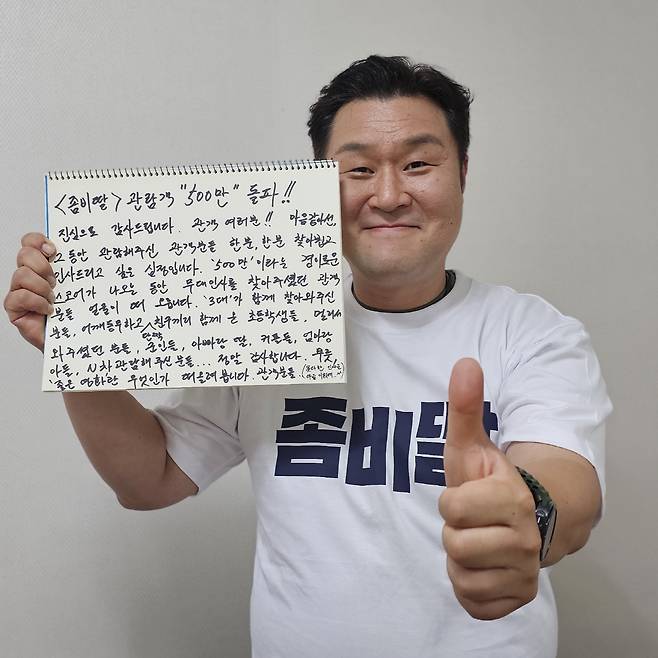 <좀비딸> 관람객 "500만" 돌파!!
진심으로 감사드립니다. 관객 여러분!! 마음같아선,
그동안 관람해주신 관객분들 한분, 한분 찾아뵙고
인사드리고 싶은 심정입니다. '500만'이라는 경이로운
스코어가 나오는 동안 무대인사를 찾아주셨던 관객
분들 얼굴이 떠오릅니다. '3대'가 함께 찾아와주신
분들, 어깨동무하고 단짝 친구끼리 함께 온 초등학생들, 멀리서
와주셨던 분들, 군인들, 아빠와 딸, 커플들, 엄마랑
아들, N차 관람해주신 분들... 정말 감사합니다. 무릇,
'좋은 영화란 무엇인가' 떠올려 봅니다. 관객분들
좀비딸